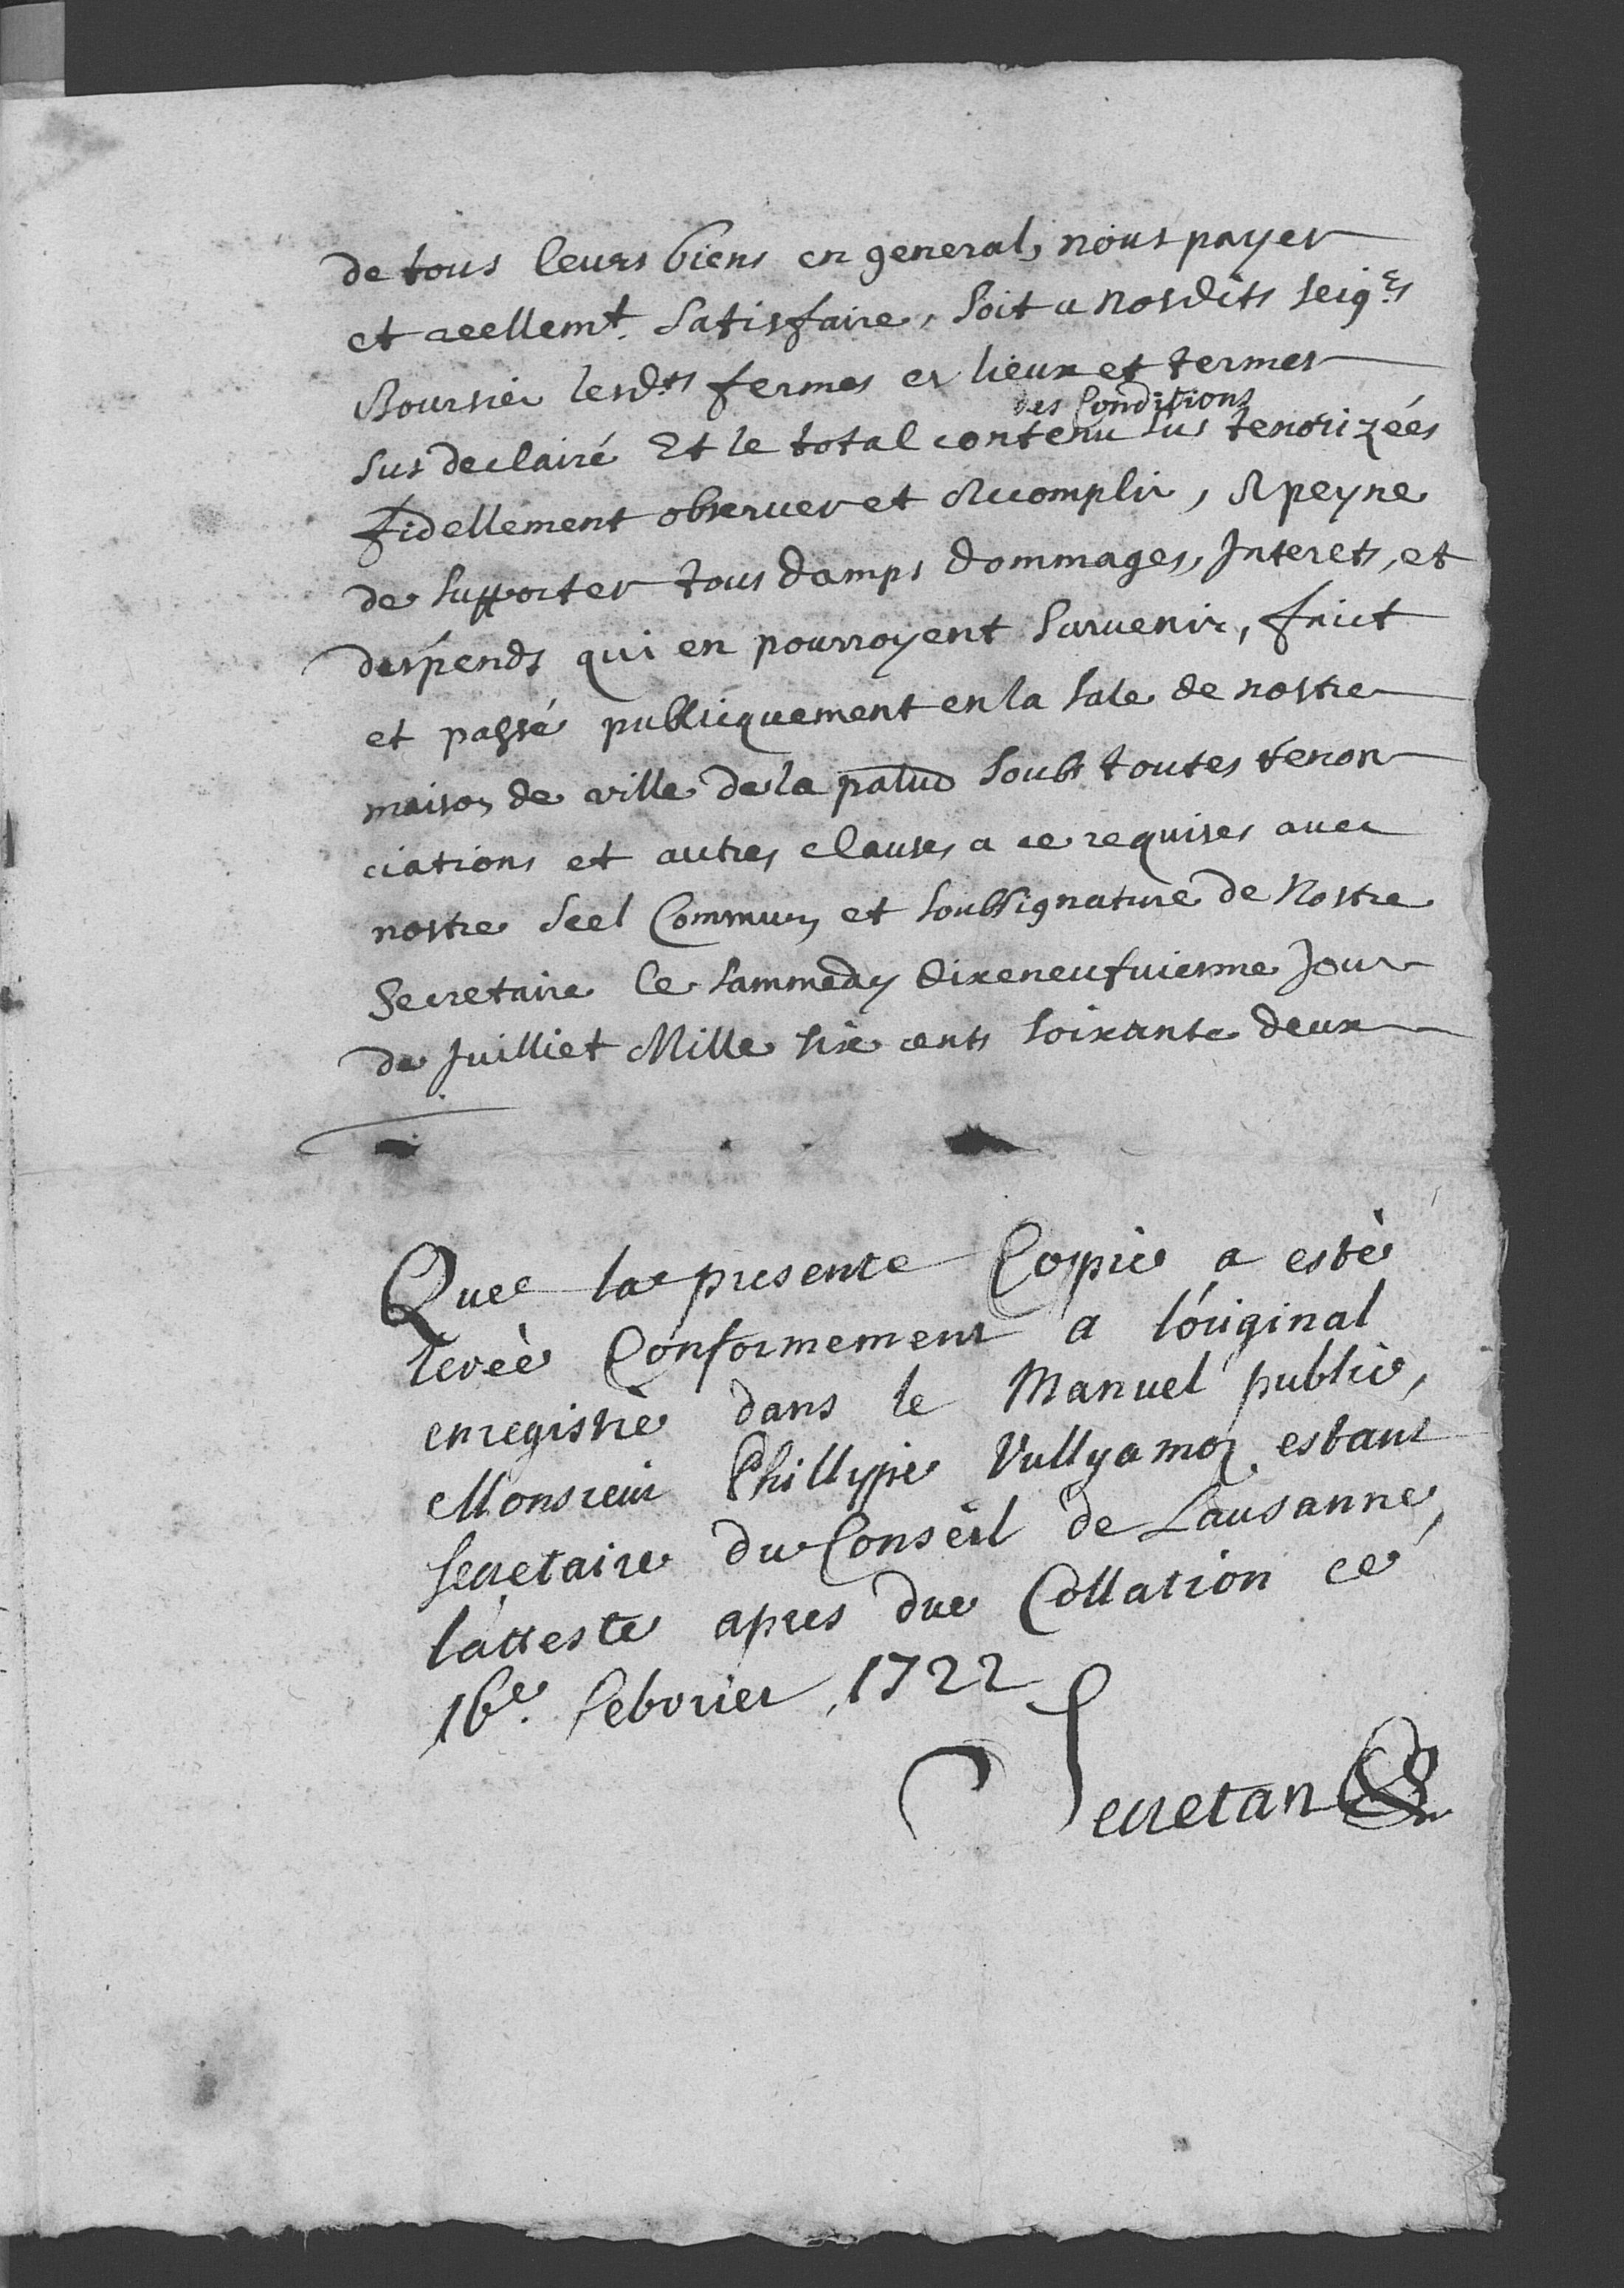 de tous leurs biens en general, nous payer
et reellemt. satisfaire, soit a nosdits seigrs
Boursier lesdts fermes es lieux et termes
des Conditions
sus declairé Et le total contenu sus tenorizées
fidellement observer et Accomplir, A peyne
de supporter tous damps dommages, Interets, et
despends qui en pourroyent survenir, faict
et passé publicquement en la sale de nostre
maison de ville de la palud soubs toutes renon
ciations et autres clauses a ce requises avec
nostre seel Commun et soubsignature de Nostre
Secretaire le sammedy dixeneufviesme Jour
de Juilliet Mille six cents soixante deux
Que la presente Copie a esté
levée Conformement a l'original
enregistré dans le Manuel public,
Monsieur Phillippe Vullyamoz estant
secretaire du Conseil de Lausanne,
l'atteste apres due Collation ce
16e. febvrier 1722
Secretan